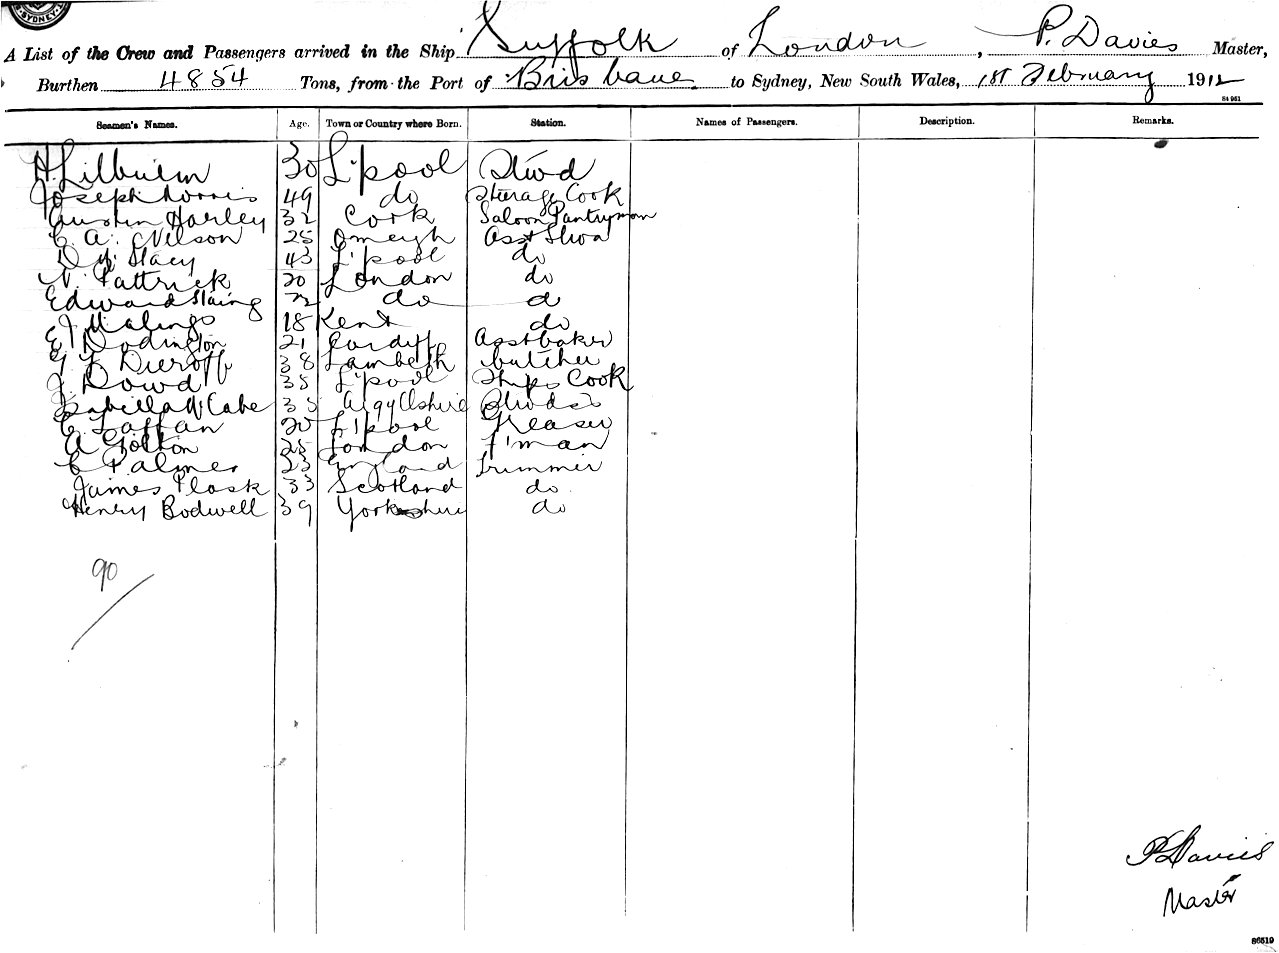 SYDNEY
A List of the Crew and Passengers arrived in the Ship Suffolk of London, P. Davies Master,
Burthen 4854 Tons, from the Port of Brisbane to Sydney, New South Wales, 1st February 1912
84961
Seamen's Names. Age. Town or Country where Born. Station. Names of Passengers. Description. Remarks.
H. Lilburn 30 L'pool Stwd
Joseph Norris 49 do Steerage Cook
Austin Harley 32 Cork Saloon Pantryman
E. A. Nelson 25 Omeigh Asst Stwd
D. Mc Stacy 43 L'pool do
N. Pattrick 20 London do
Edward Slaing 22 do d
E J Malings 18 Kent do
E. Dodington 21 Cardiff Asst baker
G F Dieroff 38 Lambeth butcher
J. Dowd 35 L'pool Ships Cook
Isabella McCabe 35 Argyllshire Stwdss
E. Laffan 20 L'pool Greaser
A Golton 25 London F'man
C Palmer 23 England Trimmer
James Plask 33 Scotland do
Henry Bodwell 39 Yorkshire do
90
P Davies
Master
86519